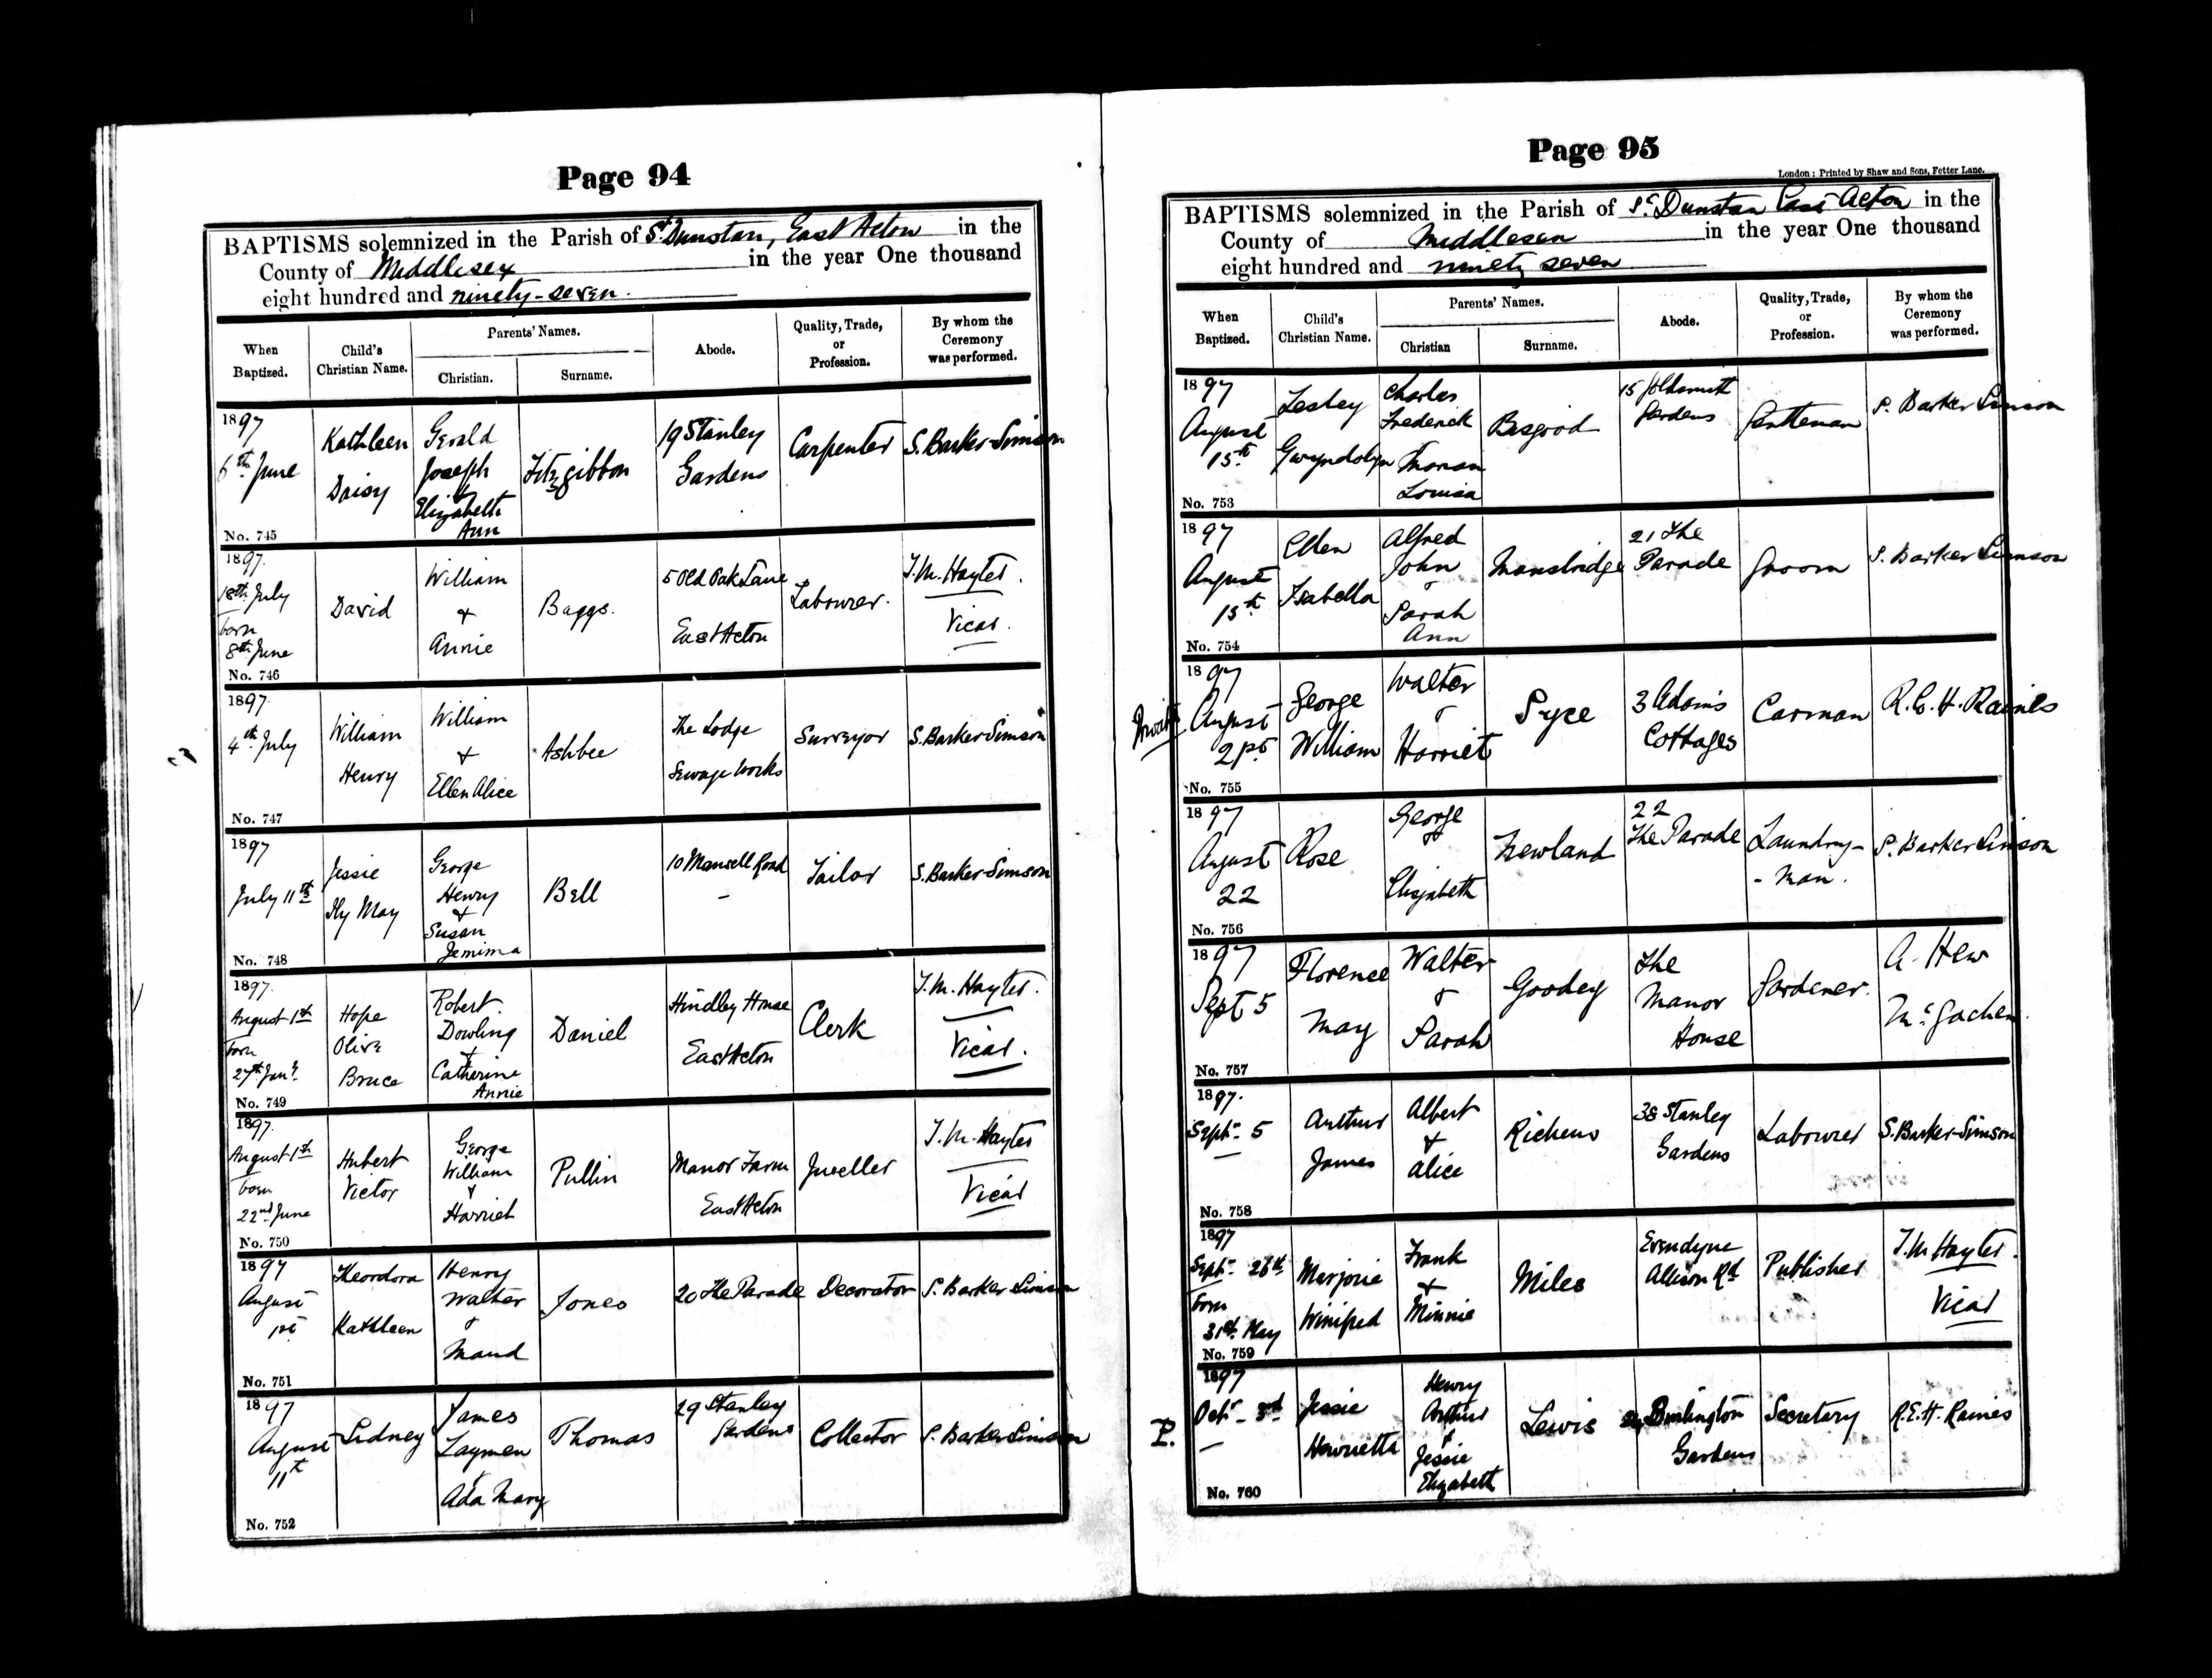 Page 94
BAPTISMS solemnized in the Parish of St. Dunstan, East Acton in the
County of Middlesex in the year One thousand
eight hundred and ninety-seven.
When Baptized.
Child's Christian Name.
Parents' Names.
Christian.
Surname.
Abode.
Quality, Trade, or Profession.
By whom the Ceremony was performed.
1897
6th June
Kathleen
Daisy
Gerald
Joseph
&
Elizabeth
Ann
Fitzgibbon
19 Stanley
Gardens
Carpenter
S. Barker-Simson
No. 745
1897.
18th July
born
8th June
David
William
&
Annie
Baggs.
5 Old Oak Lane
East Acton
Labourer.
T.M. Hayter.
Vicar.
No. 746
1897.
4th July
William
Henry
William
&
Ellen Alice
Ashbee
The Lodge
Sewage Works
Surveyor
S. Barker-Simson
No. 747
1897
July 11th
Jessie
May
George
Henry
&
Susan
Jemima
Bell
10 Mansell Road
Tailor
S. Barker-Simson
No. 748
1897.
August 1st
born
27th Jany
Hope
Olive
Bruce
Robert
Dowling
&
Catherine
Annie
Daniel
Hindley House
East Acton
Clerk
T.M. Hayter.
Vicar.
No. 749
1897.
August 1st
born
22nd June
Hubert
Victor
George
William
&
Harriet
Pullin
Manor Farm
East Acton
Jweller
T.M. Hayter
Vicar
No. 750
1897
August
1st
Theordora
Kathleen
Henry
Walter
&
Maud
Jones
20 The Parade
Decorator
S. Barker Simson
No. 751
1897
August
11th
Sidney
James
Laymen
&
Ada Mary
Thomas
29 Stanley
Gardens
Collector
S. Barker Simson
No. 752
Page 95
London: Printed by Shaw and Sons, Fetter Lane.
BAPTISMS solemnized in the Parish of St. Dunstan East Acton in the
County of Middlesex in the year One thousand
eight hundred and ninety seven
When Baptized.
Child's Christian Name.
Parents' Names.
Christian
Surname.
Abode.
Quality, Trade, or Profession.
By whom the Ceremony was performed.
1897
August
15th
Lesley
Gwyndolyn
Charles
Frederick
&
Louisa
Bisgood
15 Goldsmith
Gardens
Gentleman
S. Barker Simson
No. 753
1897
August
15th
Ellen
Isabella
Alfred
John
&
Sarah
Ann
Mansbridge
21 The
Parade
Groom
S. Barker Simson
No. 754
Private
1897
August
21st
George
William
Walter
&
Harriet
Syce
3 Adams
Cottages
Carman
R.E.H. Raines
No. 755
1897
August
22
Rose
George
&
Elizabeth
Newland
22
The Parade
Laundry-
-man.
S. Barker Simson
No. 756
1897
Sept 5
Florence
May
Walter
&
Sarah
Goodey
The
Manor
House
Gardener.
A. Hew
McGachen
No. 757
1897.
Septr 5
Arthur
James
Albert
&
Alice
Richens
38 Stanley
Gardens
Labourer
S. Barker-Simson
No. 758
1897
Septr 26th
born
31st May
Marjorie
Winifred
Frank
&
Minnie
Miles
Evendyne
Allison Rd
Publisher
T.M. Hayter.
Vicar
No. 759
P.
1897
Octr 3rd
Jessie
Henrietta
Henry
Arthur
&
Jessie
Elizabeth
Lewis
Burlington
Gardens
Secretary
R.E.H. Raines
No. 760